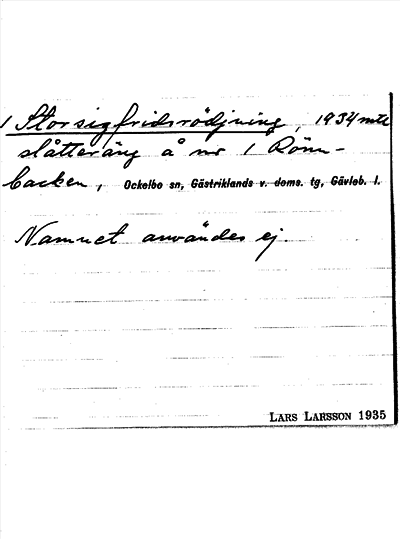 1 Storsigfridsrödjning, 1934 mtl
slåtteräng å nr 1 Rönn-
backen, Ockelbo sn, Gästriklands v. doms. tg, Gävleb. l.
Namnet användes ej.
LARS LARSSON 1935